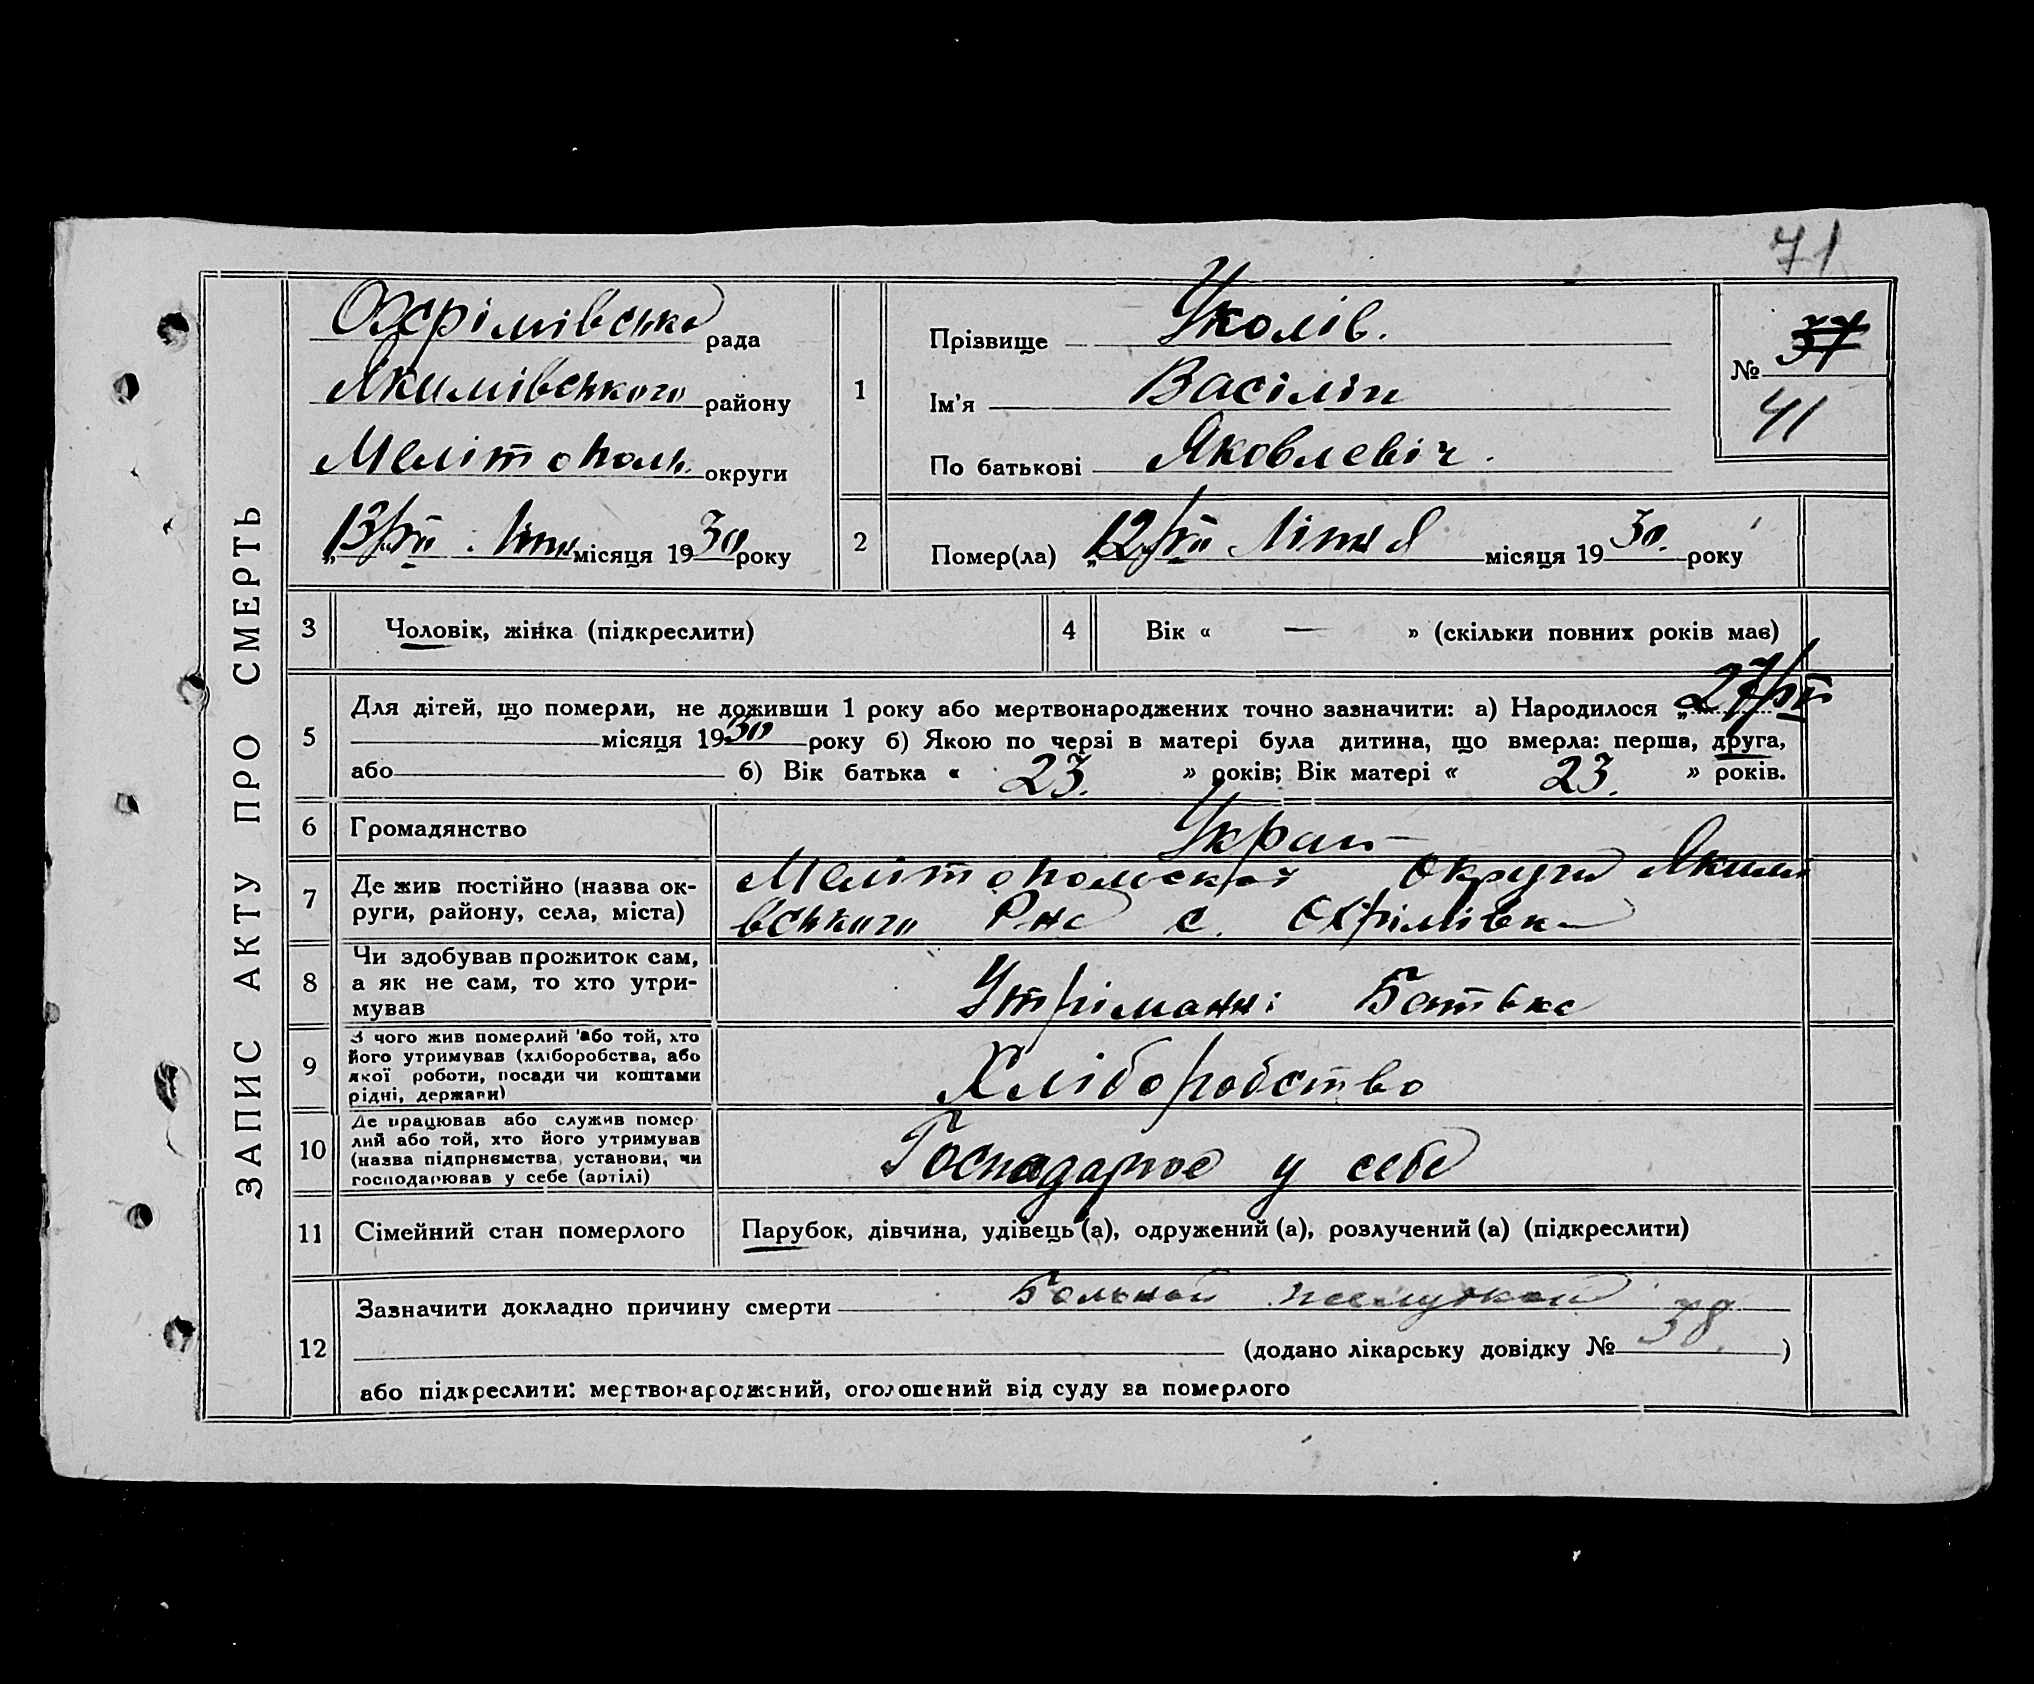 71
ЗАПИС АКТУ ПРО СМЕРТЬ
Охрімівська рада
Якимівського району
Мелітополь. округи
„13/VII Літня місяця 1930 року
1
Прізвище Уколів.
Ім'я Васілій
По батькові Яковлевіч.
№ 37
41
2
Помер(ла) „12/VII Літня місяця 1930. року
3 Чоловік, жінка (підкреслити)
4 Вік « — » (скільки повних років має)
5 Для дітей, що померли, не доживши 1 року або мертвонароджених точно зазначити: а) Народилося „27/
місяця 1930 року б) Якою по черзі в матері була дитина, що вмерла: перша, друга,
або б) Вік батька « 23. » років; Вік матері « 23. » років.
6 Громадянство Украї
7 Де жив постійно (назва ок-
руги, району, села, міста)
Мелітопольскої округи Якимі
вського Р-на с. Охрімівка
8 Чи здобував прожиток сам,
а як не сам, то хто утри-
мував
Утріманні Батька
9 З чого жив померлий або той, хто
його утримував (хліборобства, або
якої роботи, посади чи коштами
рідні, держави)
Хліборобство
10 Де працював або служив помер-
лий або той, хто його утримував
(назва підприємства, установи, чи
господарював у себе (артілі)
Господарює у себе
11 Сімейний стан померлого Парубок, дівчина, удівець (а), одружений (а), розлучений (а) (підкреслити)
12 Зазначити докладно причину смерти Больной желудком
(додано лікарську довідку № 38 )
або підкреслити: мертвонароджений, оголошений від суду за померлого